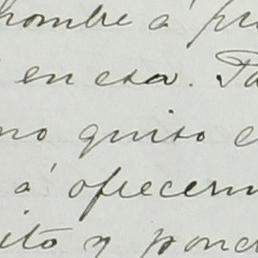 nombre á pr
en esa. Pa
no quiso c
á ofrecerm
ito y pone